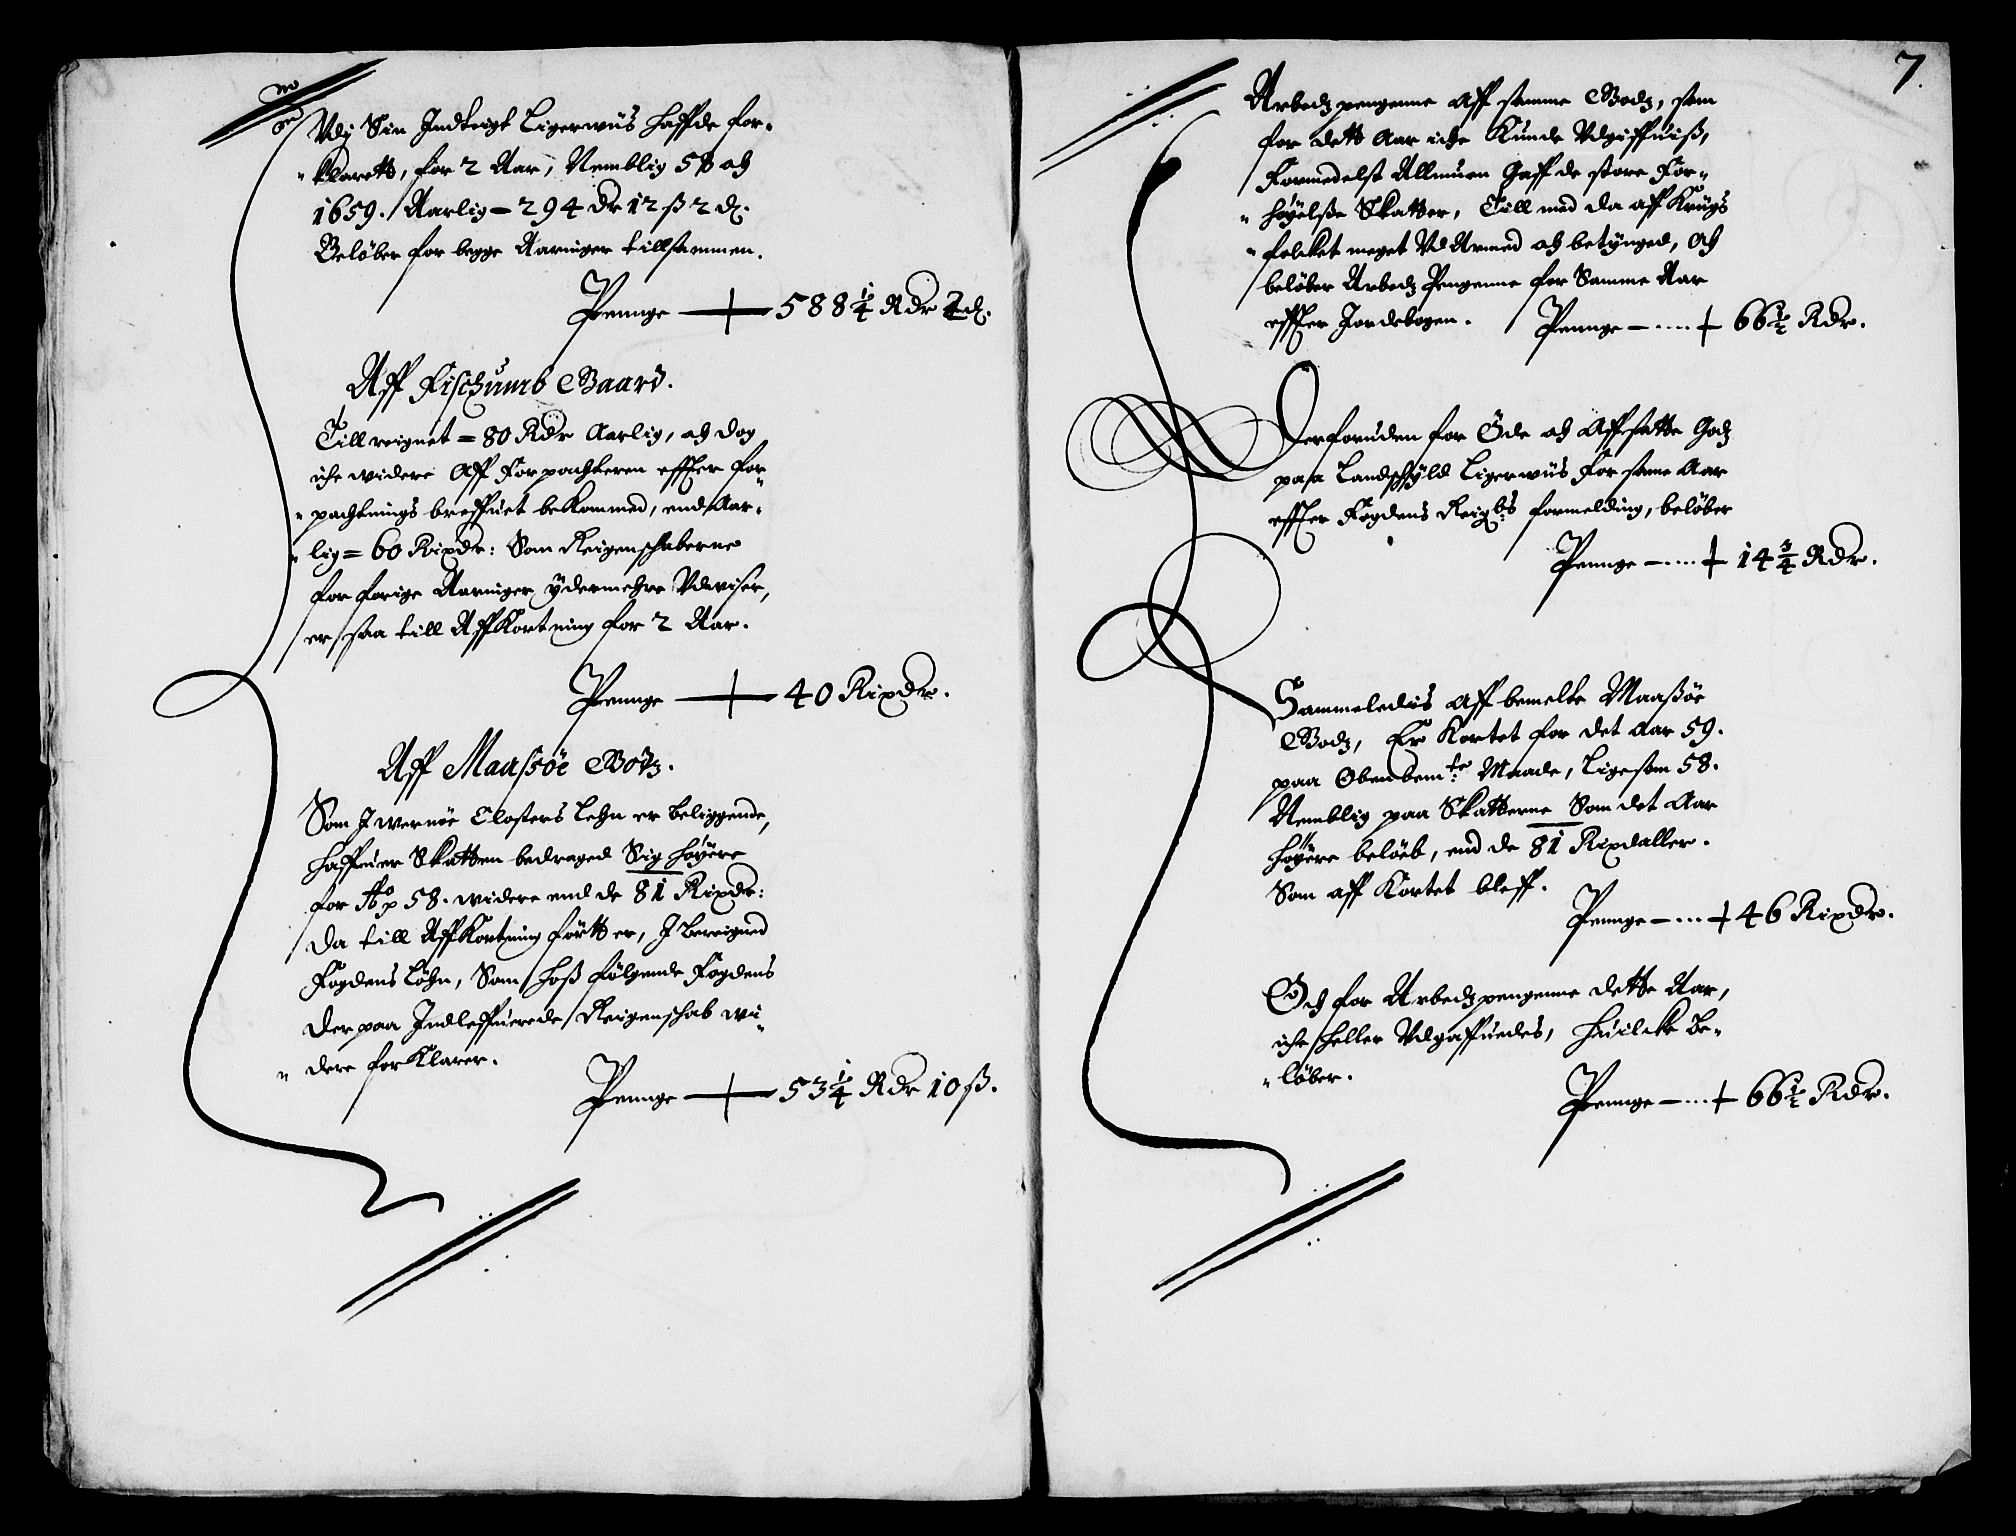 Vdj Sin Indteigt Ligerwiis Haffde for-
"klarett, for 2 Aar, Nemblig 58 och
1659. Aarlig = 294 dr 12 ß 2 d.
Beløber for begge Aaringer tillsammen.
Pennge — 588 1/4 Rdr 4 d.
Aff Fischumb Gaard.
Till reignet = 80 Rdr Aarlig, och dog
iche widere Aff Forpachteren effter for-
"pachtnings breffuet bekommed, end Aar-
"lig = 60 Rixdr: Som Reigenschaberne
for forige Aaringer ÿdermehre Vdwiser,
er saa till AffKortning for 2 Aar.
Pennge — 40 Rixdr.
Aff Maasöe Godz.
Som J wernöe Closters Lehn er beliggende,
haffuer Skatten bedraged Sig høyere
for Ao 58. widere end de 81 Rixdr:
da till AffKortning førtt er, J bereigned
Fogdens Löhn, Som hoß fölgende Fogdens
der paa Indleffuerede Reigenschab wi-
"dere forKlarer.
Pennge — 53 1/4 Rdr 10 ß.
7.
Arbedz pengenne Aff samme Godz, som
for dett Aar iche Kunde Vdgiffuiß,
Formedelst Allmuen Gaff de store For-
"høyelße Skatter, Till med da aff Krügs
"folcket meget VdArmed och betÿnged, och
beløber Arbedz Pengenne for Samme Aar
effter Jordebogen. Pennge — 66 1/2 Rdr.
Derforuden for Öde och Affsatte Godz
paa Landschÿld Ligerwiis for same Aar
effter Fogdens Reigbs formelding, beløber
Pennge — 14 3/4 Rdr.
Sammeledis Aff bemelte Maaßöe
Godz, Er Kortet for det Aar 59.
paa Obenbemte Maade, Ligesom 58.
Nemblig paa Skatterne Som det Aar
høyere belöeb, end de 81 Rixdaller.
Som aff Kortet bleff.
Pennge — 46 Rixdr.
Och for Arbedz pengenne dette Aar,
iche heller Vdgaffuedes, huilcke be-
"löber.
Pennge — 66 1/2 Rdr.